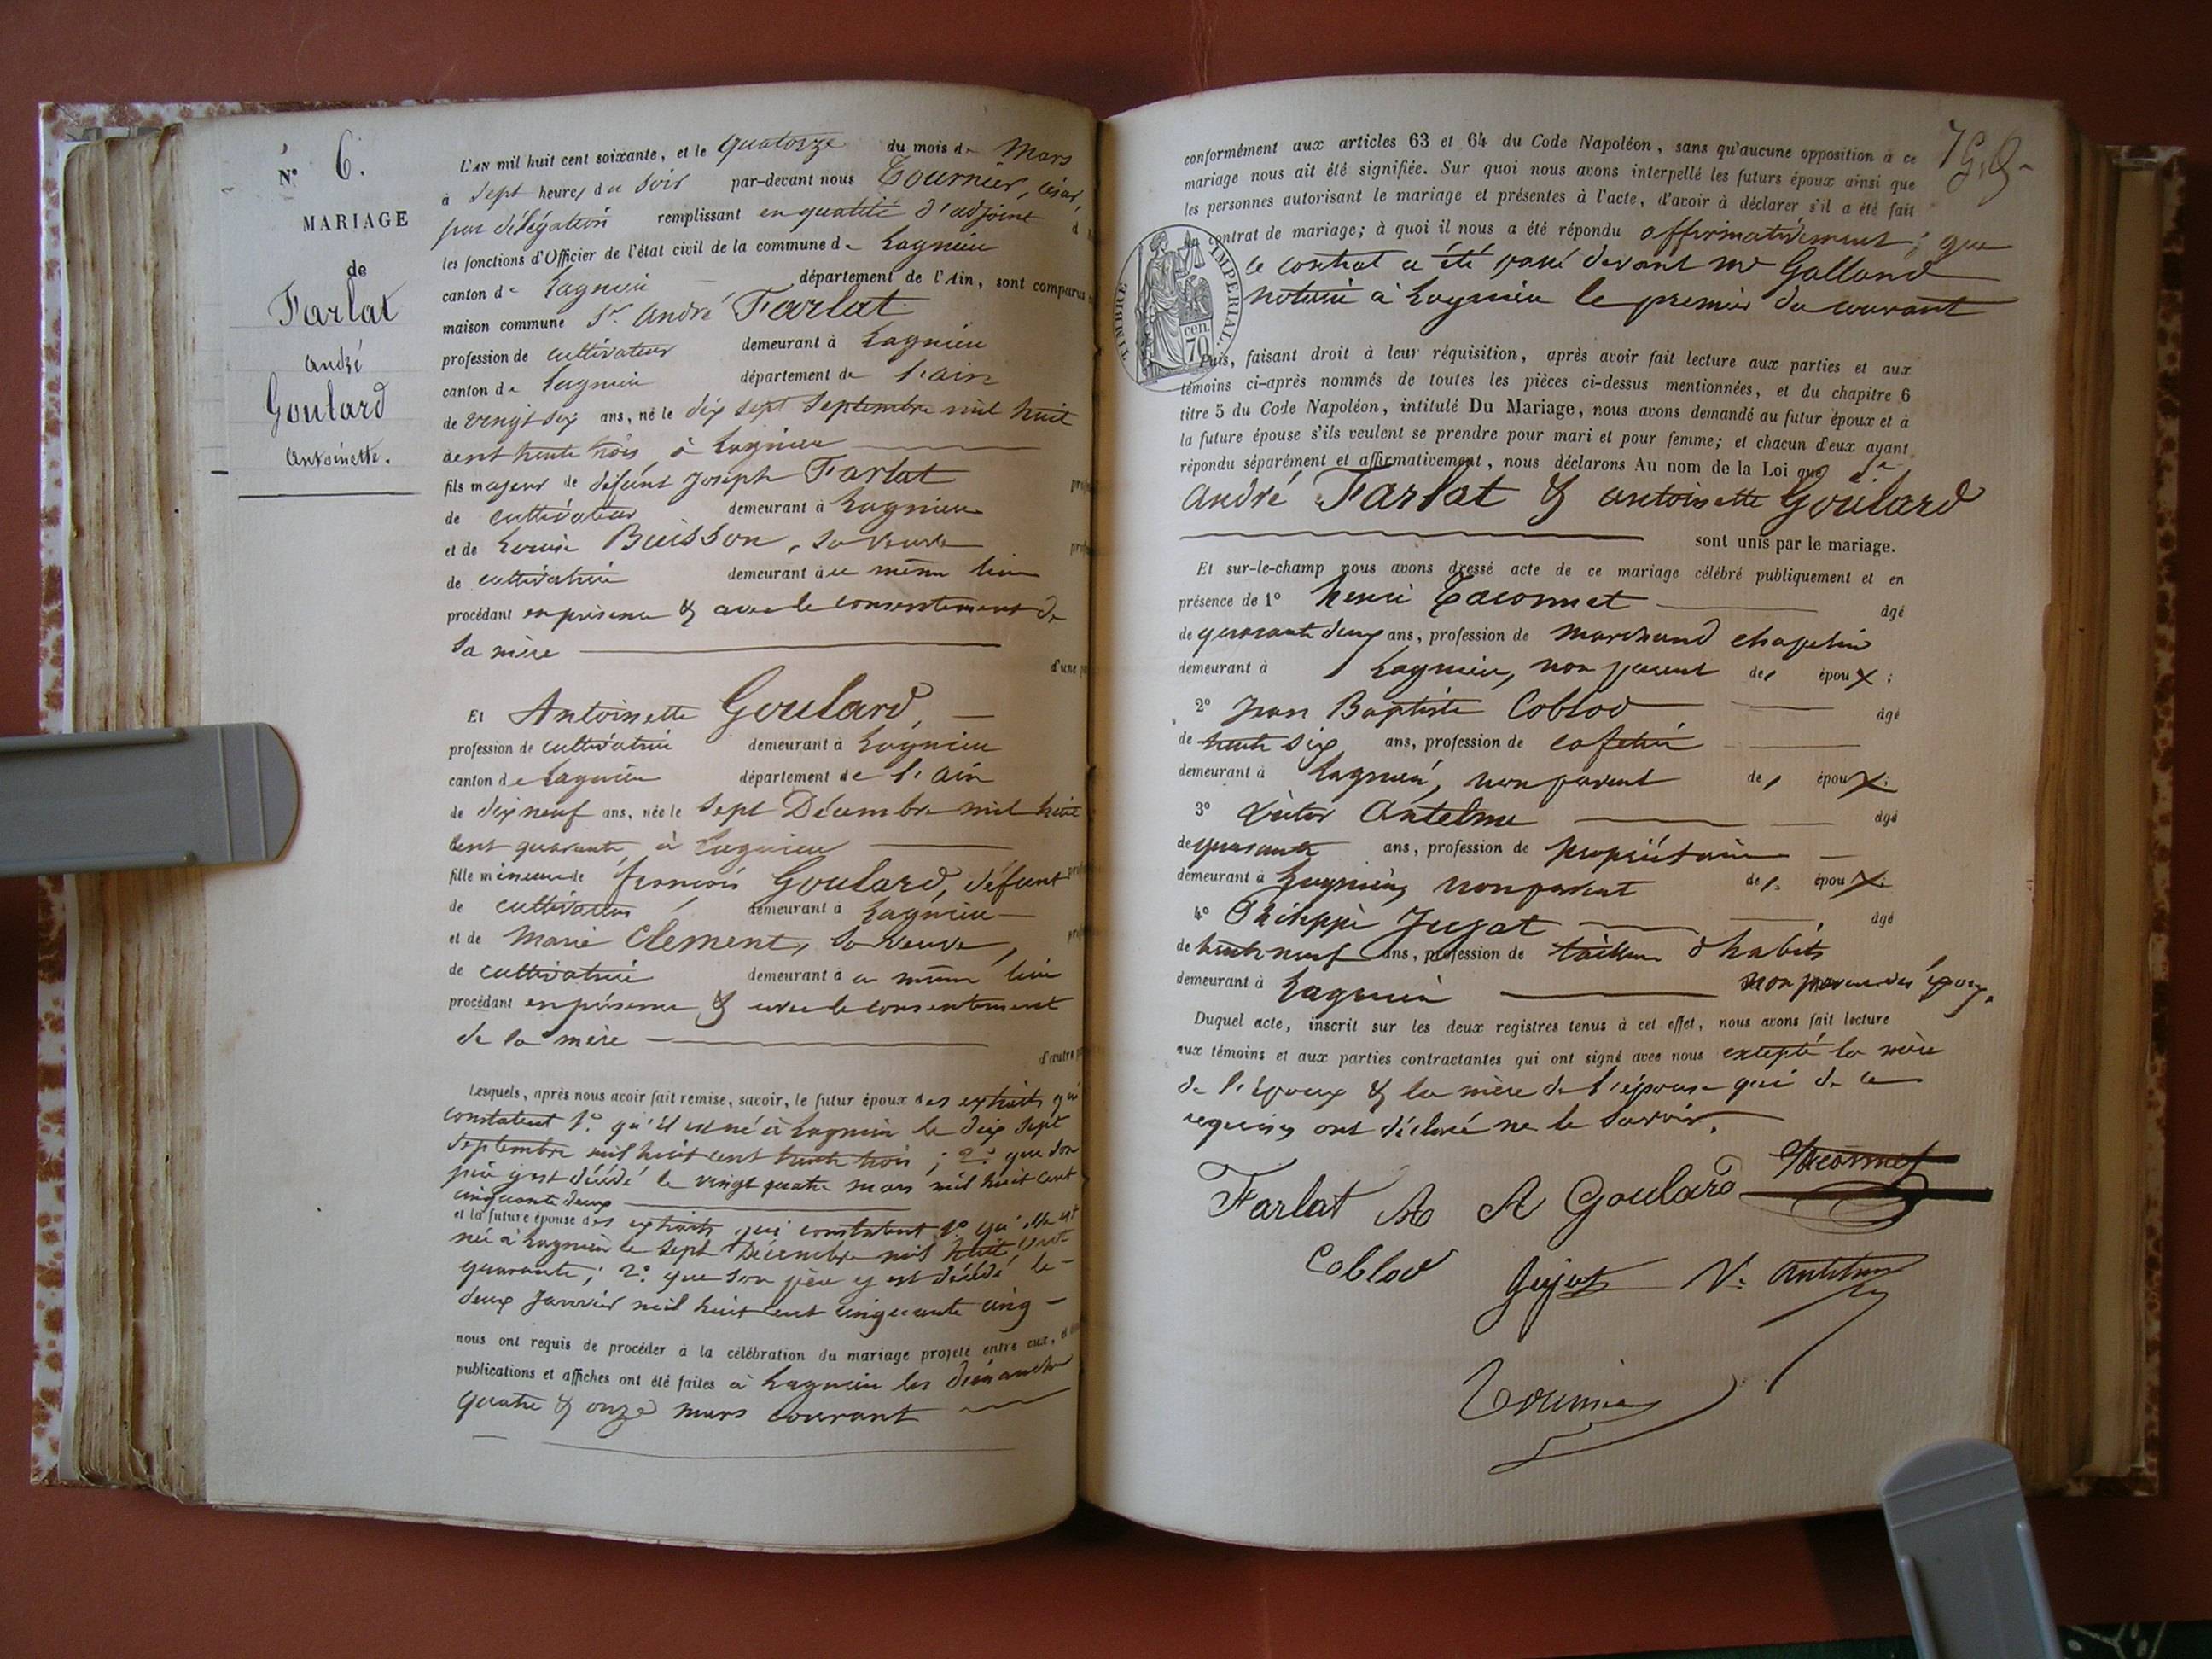 N° 6.
MARIAGE
de
Farlat
André
Goulard
Antoinette.
L'AN mil huit cent soixante, et le quatorze du mois de Mars
à sept heures du soir par-devant nous Tournier, César,
par délégation remplissant en qualité d'adjoint
les fonctions d'Officier de l'état civil de la commune de Lagnieu
canton de Lagnieu département de l'Ain, sont comparus
maison commune Sr André Farlat
profession de cultivateur demeurant à Lagnieu
canton de Lagnieu département de l'ain
de vingt six ans, né le dix sept Septembre mil huit
cent trente trois à Lagnieu
fils majeur de défunt Joseph Farlat
de cultivateur demeurant à Lagnieu
et de Louise Buisson, sa veuve
de cultivatrice demeurant à ce même lieu
procédant en présence & avec le consentement de
sa mère
d'une
Et Antoinette Goulard,
profession de cultivatrice demeurant à Lagnieu
canton de Lagnieu département de l'ain
de dix neuf ans, née le sept Décembre mil huit
cent quarante à Lagnieu
fille mineure de françois Goulard, défunt
de cultivateur demeurant à Lagnieu
et de Marie Clement, sa veuve,
de cultivatrice demeurant à ce même lieu
procédant en présence & avec le consentement
de la mère
d'autre
Lesquels, après nous avoir fait remise, savoir, le futur époux des extraits qui
constatent 1° qu'il est né à Lagnieu le dix sept
Septembre mil huit cent trente trois ; 2° que son
père y est décédé le vingt quatre mars mil huit cent
cinquante deux
et la future épouse des extraits qui constatent 1° qu'elle est
née à Lagnieu le sept Décembre mil huit cent
quarante ; 2° que son père y est décédé le
deux Janvier mil huit cent cinquante cinq
nous ont requis de procéder à la célébration du mariage projeté entre eux,
publications et affiches ont été faites à Lagnieu les dimanche
quatre & onze mars courant
conformément aux articles 63 et 64 du Code Napoléon, sans qu'aucune opposition à ce
mariage nous ait été signifiée. Sur quoi nous avons interpellé les futurs époux ainsi que
les personnes autorisant le mariage et présentes à l'acte, d'avoir à déclarer s'il a été fait
contrat de mariage; à quoi il nous a été répondu affirmativement ; que
le contrat a été passé devant Me Galland
notaire à Lagnieu le premier du courant
TIMBRE IMPERIAL
70 cen.
Puis, faisant droit à leur réquisition, après avoir fait lecture aux parties et aux
témoins ci-après nommés de toutes les pièces ci-dessus mentionnées, et du chapitre 6
titre 5 du Code Napoléon, intitulé Du Mariage, nous avons demandé au futur époux et à
la future épouse s'ils veulent se prendre pour mari et pour femme; et chacun d'eux ayant
répondu séparément et affirmativement, nous déclarons Au nom de la Loi que
André Farlat & antoinette Goulard
sont unis par le mariage.
Et sur-le-champ nous avons dressé acte de ce mariage célébré publiquement et en
présence de 1° henri Taconnet âgé
de quarante deux ans, profession de marchand chapelier
demeurant à Lagnieu, non parent des époux ;
2° Jean Baptiste Coblod âgé
de trente six ans, profession de cafetier
demeurant à Lagnieu, non parent des époux ;
3° Victor Antelme âgé
de quarante ans, profession de propriétaire
demeurant à Lagnieu, non parent des époux ;
4° Philippe Jujat âgé
de trente neuf ans, profession de tailleur d'habits
demeurant à Lagnieu non parent des époux.
Duquel acte, inscrit sur les deux registres tenus à cet effet, nous avons fait lecture
aux témoins et aux parties contractantes qui ont signé avec nous excepté la mère
de l'époux & la mère de l'épouse qui de ce
requises ont déclaré ne le savoir.
Farlat A A Goulard Taconnet
Coblod Jujat V. Antelme
Tournier